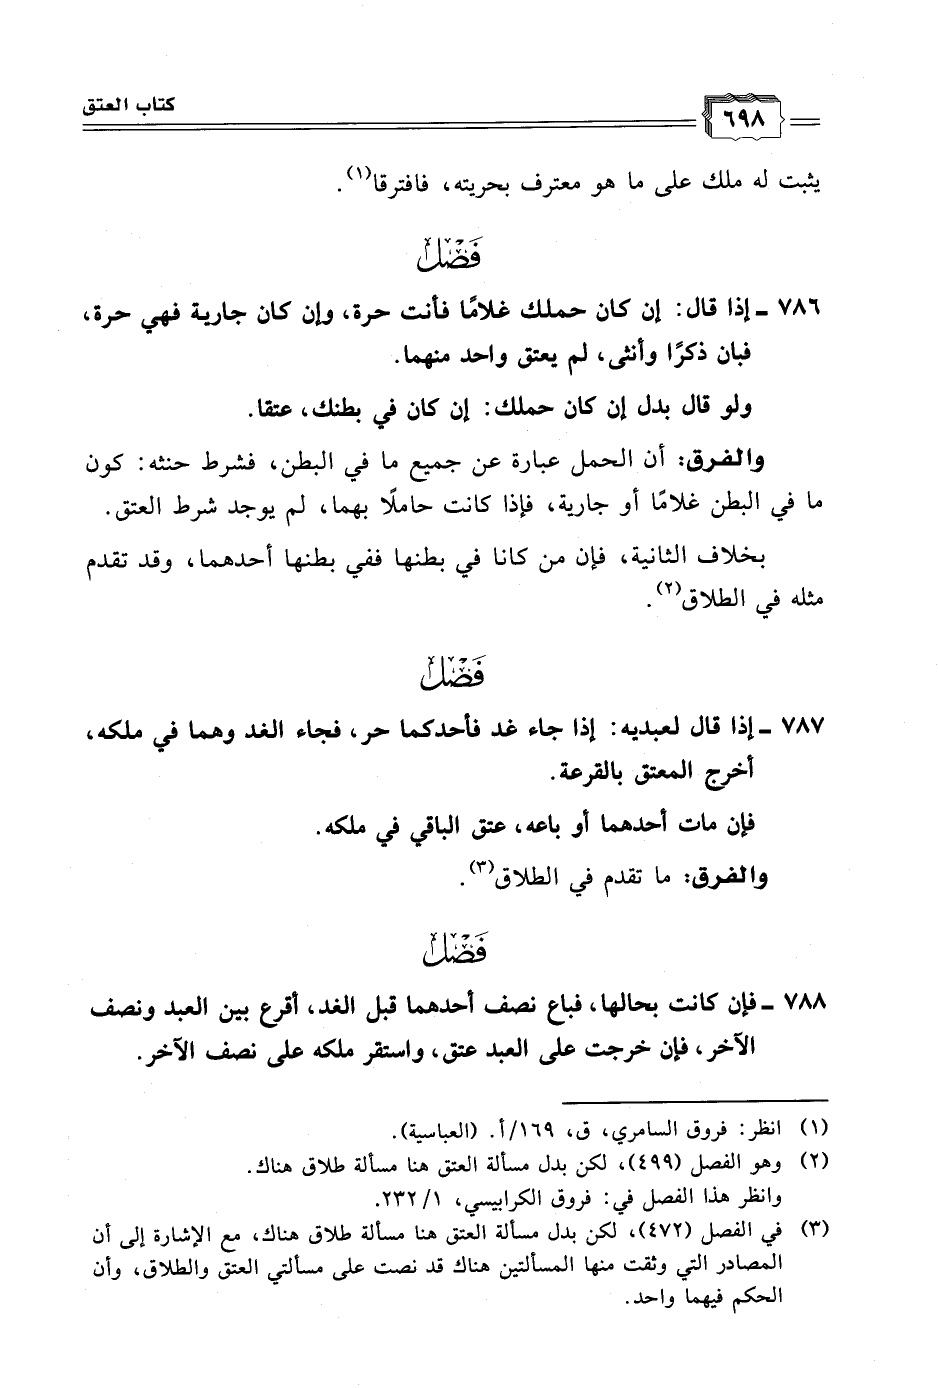 كتاب العتق
٦٩٨
يثبت له ملك على ما هو معترف بحريته، فافترقا(١).
فَصْل
٧٨٦ ـ إذا قال: إن كان حملك غلامًا فأنت حرة، وإن كان جارية فهي حرة،
فبان ذكرًا وأنثى، لم يعتق واحد منهما.
ولو قال بدل إن كان حملك: إن كان في بطنك، عتقا.
والفرق: أن الحمل عبارة عن جميع ما في البطن، فشرط حنثه: كون
ما في البطن غلامًا أو جارية، فإذا كانت حاملًا بهما، لم يوجد شرط العتق.
بخلاف الثانية، فإن من كانا في بطنها ففي بطنها أحدهما، وقد تقدم
مثله في الطلاق(٢).
فَصْل
٧٨٧ ـ إذا قال لعبديه: إذا جاء غد فأحدكما حر، فجاء الغد وهما في ملكه،
أخرج المعتق بالقرعة.
فإن مات أحدهما أو باعه، عتق الباقي في ملكه.
والفرق: ما تقدم في الطلاق(٣).
فَصْل
٧٨٨ ـ فإن كانت بحالها، فباع نصف أحدهما قبل الغد، أقرع بين العبد ونصف
الآخر، فإن خرجت على العبد عتق، واستقر ملكه على نصف الآخر.
(١) انظر: فروق السامري، ق، ١٦٩/أ. (العباسية).
(٢) وهو الفصل (٤٩٩)، لكن بدل مسألة العتق هنا مسألة طلاق هناك.
وانظر هذا الفصل في: فروق الكرابيسي، ١/ ٢٣٢.
(٣) في الفصل (٤٧٢)، لكن بدل مسألة العتق هنا مسألة طلاق هناك، مع الإشارة إلى أن
المصادر التي وثقت منها المسألتين هناك قد نصت على مسألتي العتق والطلاق، وأن
الحكم فيهما واحد.